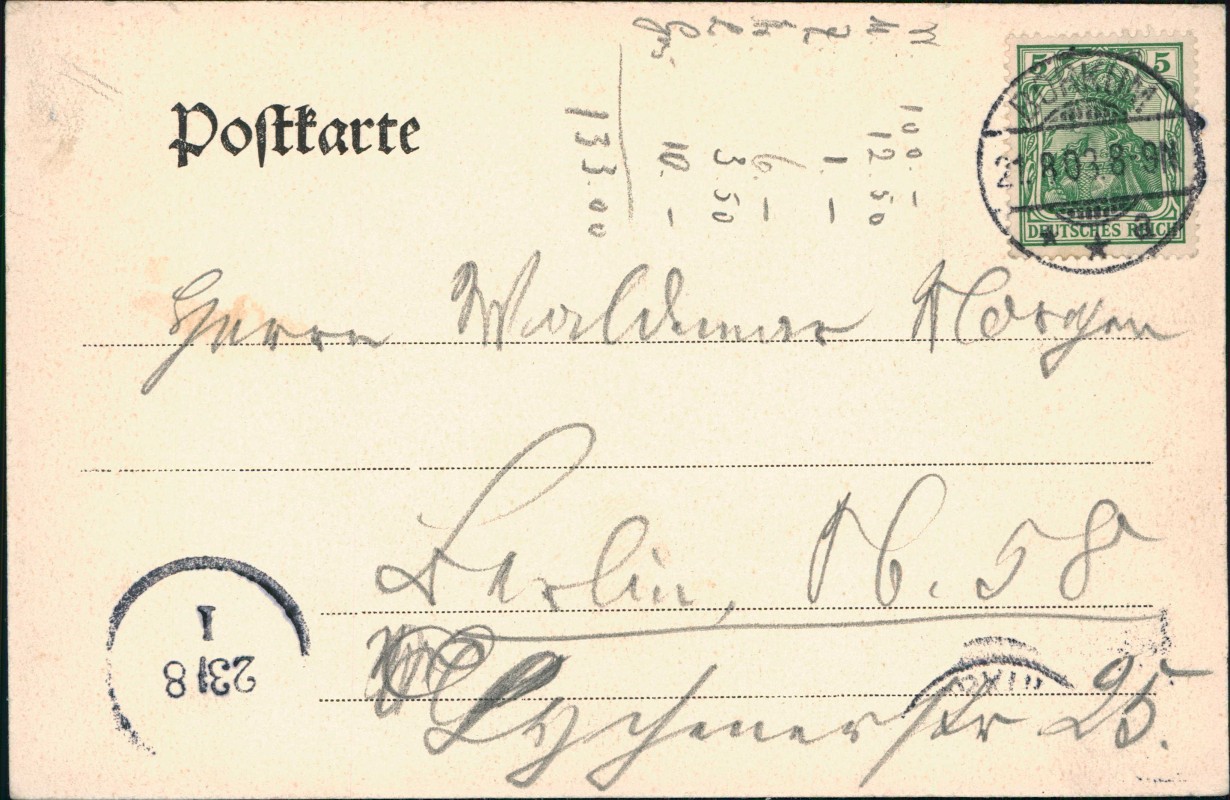 Postkarte
5 5
DEUTSCHES REICH
21.8.03.8-9N
* * a
100.-
12.50
1.-
6.-
3.50
10.-
133.00
Herrn Waldemar Morgen
Berlin, N. 58
Lychenerstr 25.
1
23 8